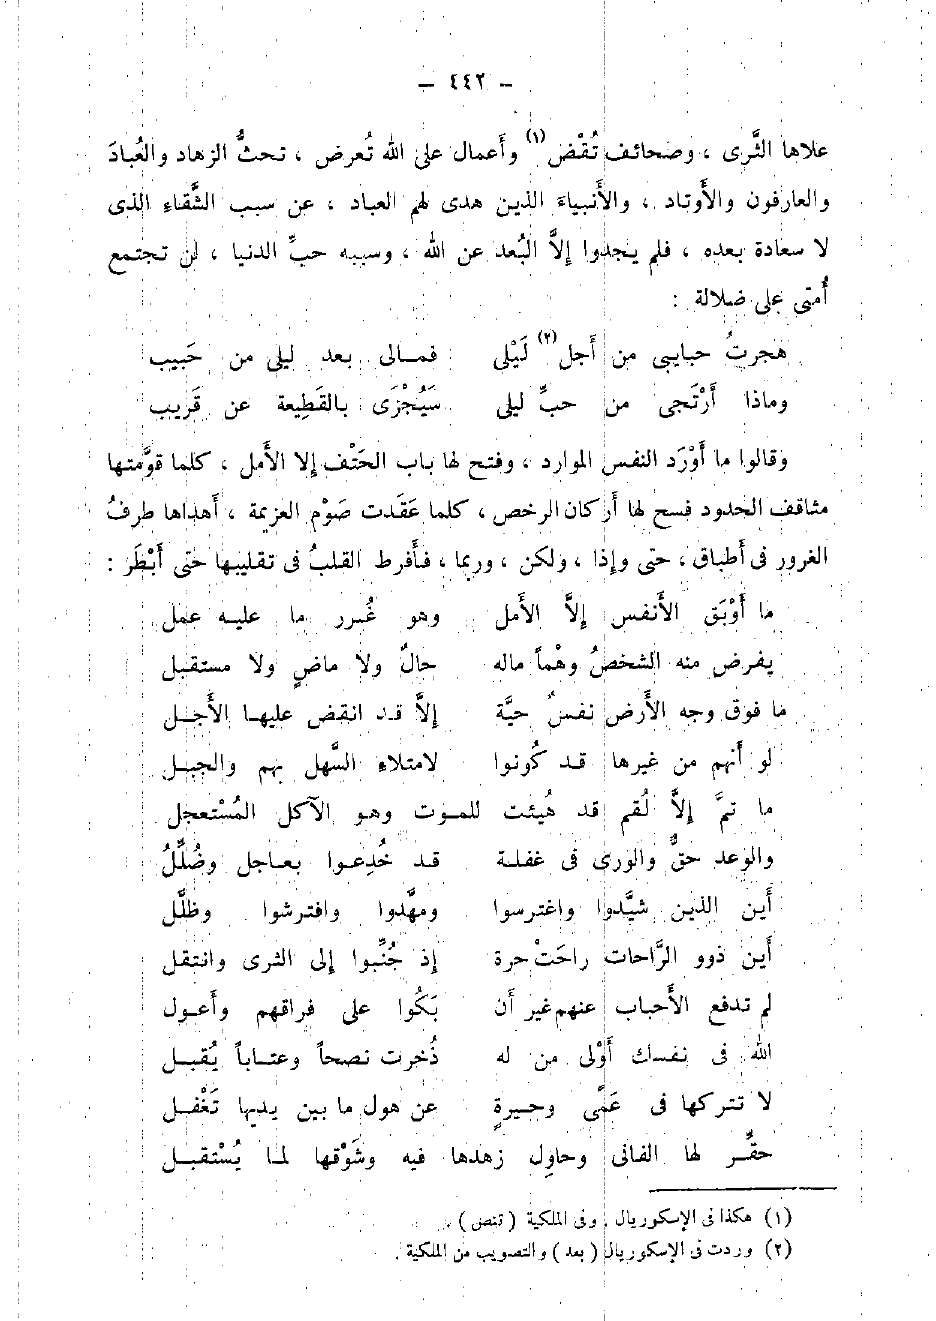 — ٤٤٢ —
علاها الثَّرى ، وصحائف تُقْض(١) وأعمال على الله تُعرض ، تحثُّ الزهاد والعُبادَ
والعارفون والأَوتاد ، والأَنبياءَ الذين هدى لهم العباد ، عن سبب الشَّقاءِ الذى
لا سعادة بعده ، فلم يجدوا إلاَّ البُعد عن الله ، وسببه حبِّ الدنيا ، لن تجتمع
أُمتى على ضلالة :
هجرتُ حبايبى من أَجل(٢) لَيْلى فمالى بعد ليلى من حَبيب
وماذا أَرْتَجى من حبِّ ليلى سَيُجْزَى بالقَطِيعة عن قَريب
وقالوا ما أَوْرَد النفس الموارد ، وفتح لها باب الحَتْف إلا الأَمل ، كلما قوَّمتها
مثاقف الحدود فسح لها أَركان الرخص ، كلما عَقَدت صَوْم العزيمة ، أَهداها طرفُ
الغرور فى أَطباق ، حتى وإذا ، ولكن ، وربما ، فأَفرط القلبُ فى تقليبها حتى أَبْطَر :
ما أَوْبَق الأَنفس إلاَّ الأَمل وهو غُرر ما عليه عمل
يفرض منه الشخصُ وهْماً ماله حالٌ ولا ماضٍ ولا مستقبل
ما فوق وجه الأَرض نفسٌ حيَّة إلاَّ قد انقض عليها الأَجل
لو أَنهم من غيرها قد كُونوا لامتلاء السَّهل بهم والجبل
ما تمَّ إلاَّ لُقم قد هُيئت للموت وهو الآكل المُسْتعجل
والوعد حقٌّ والورى فى غفلة قد خُدِعوا بعاجل وضُلِّلُ
أَين الذين شيَّدوا واغترسوا ومهَّدوا وافترشوا وظلَّل
أَين ذوو الرَّاحات راحَتْ حرة إذ جُنِّبوا إلى الثرى وانتقل
لم تدفع الأَحباب عنهم غير أَن بَكُوا على فراقهم وأَعول
الله فى نفسك أَوْلى من له ذُخرت نصحاً وعتاباً يُقبل
لا تتركها فى عَمًى وحيرةٍ عن هول ما بين يديها تَغْفل
حقِّر لها الفانى وحاوِل زهدها فيه وشَوْقها لما يُسْتقبل
(١) هكذا فى الإسكوريال . وفى الملكية (تنص) .
(٢) وردت فى الإسكوريال (بعد) والتصويب من الملكية .